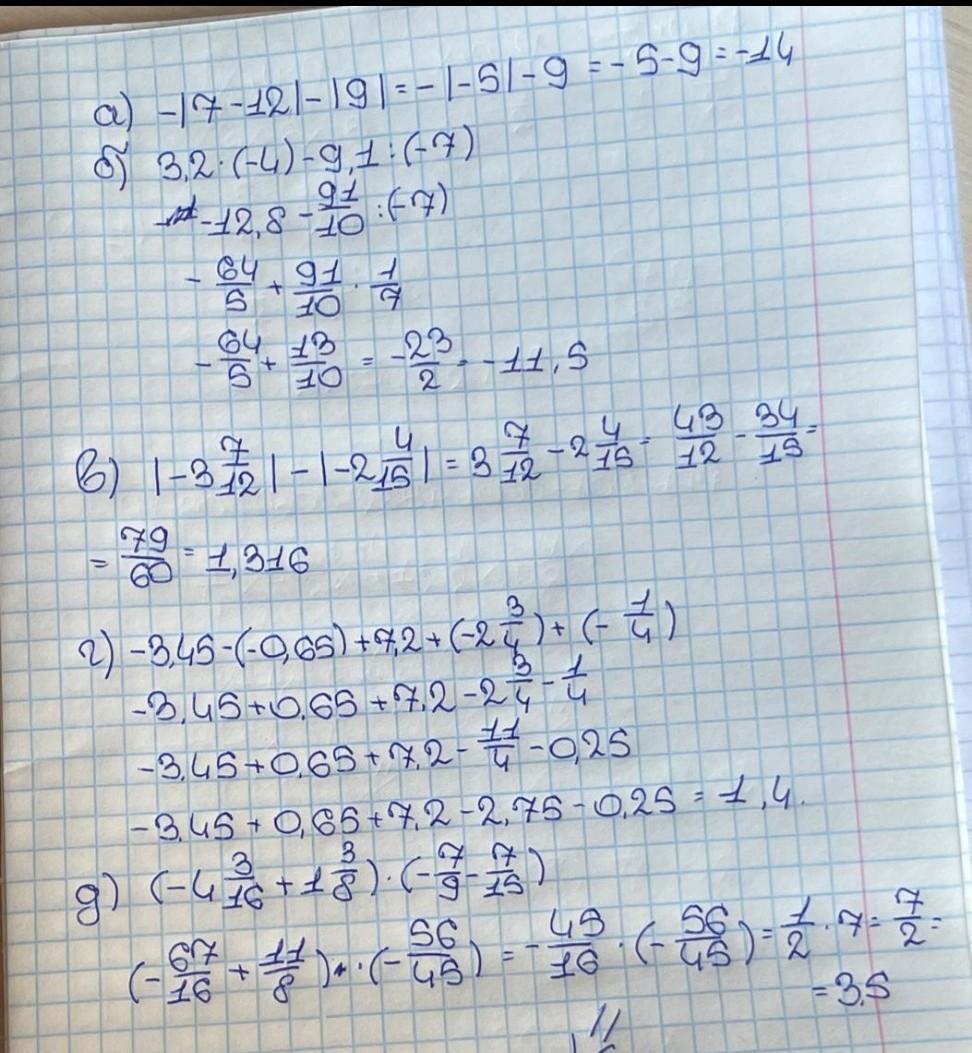 а) -|7-12|-|9|=-|-5|-9=-5-9=-14
б) 3,2·(-4)-9,1:(-7)
-12,8-91/10:(-7)
-64/5+91/10·1/7
-64/5+13/10=-23/2=-11,5
в) |-3 7/12|-|-2 4/15|=3 7/12-2 4/15=43/12-34/15=
=79/60=1,316
г) -3,45-(-0,65)+7,2+(-2 3/4)+(-1/4)
-3,45+0,65+7,2-2 3/4-1/4
-3,45+0,65+7,2-11/4-0,25
-3,45+0,65+7,2-2,75-0,25=1,4.
д) (-4 3/16+1 3/8)·(-7/9-7/15)
(-67/16+11/8)·(-56/45)=-45/16·(-56/45)=1/2·7=7/2=
=3,5